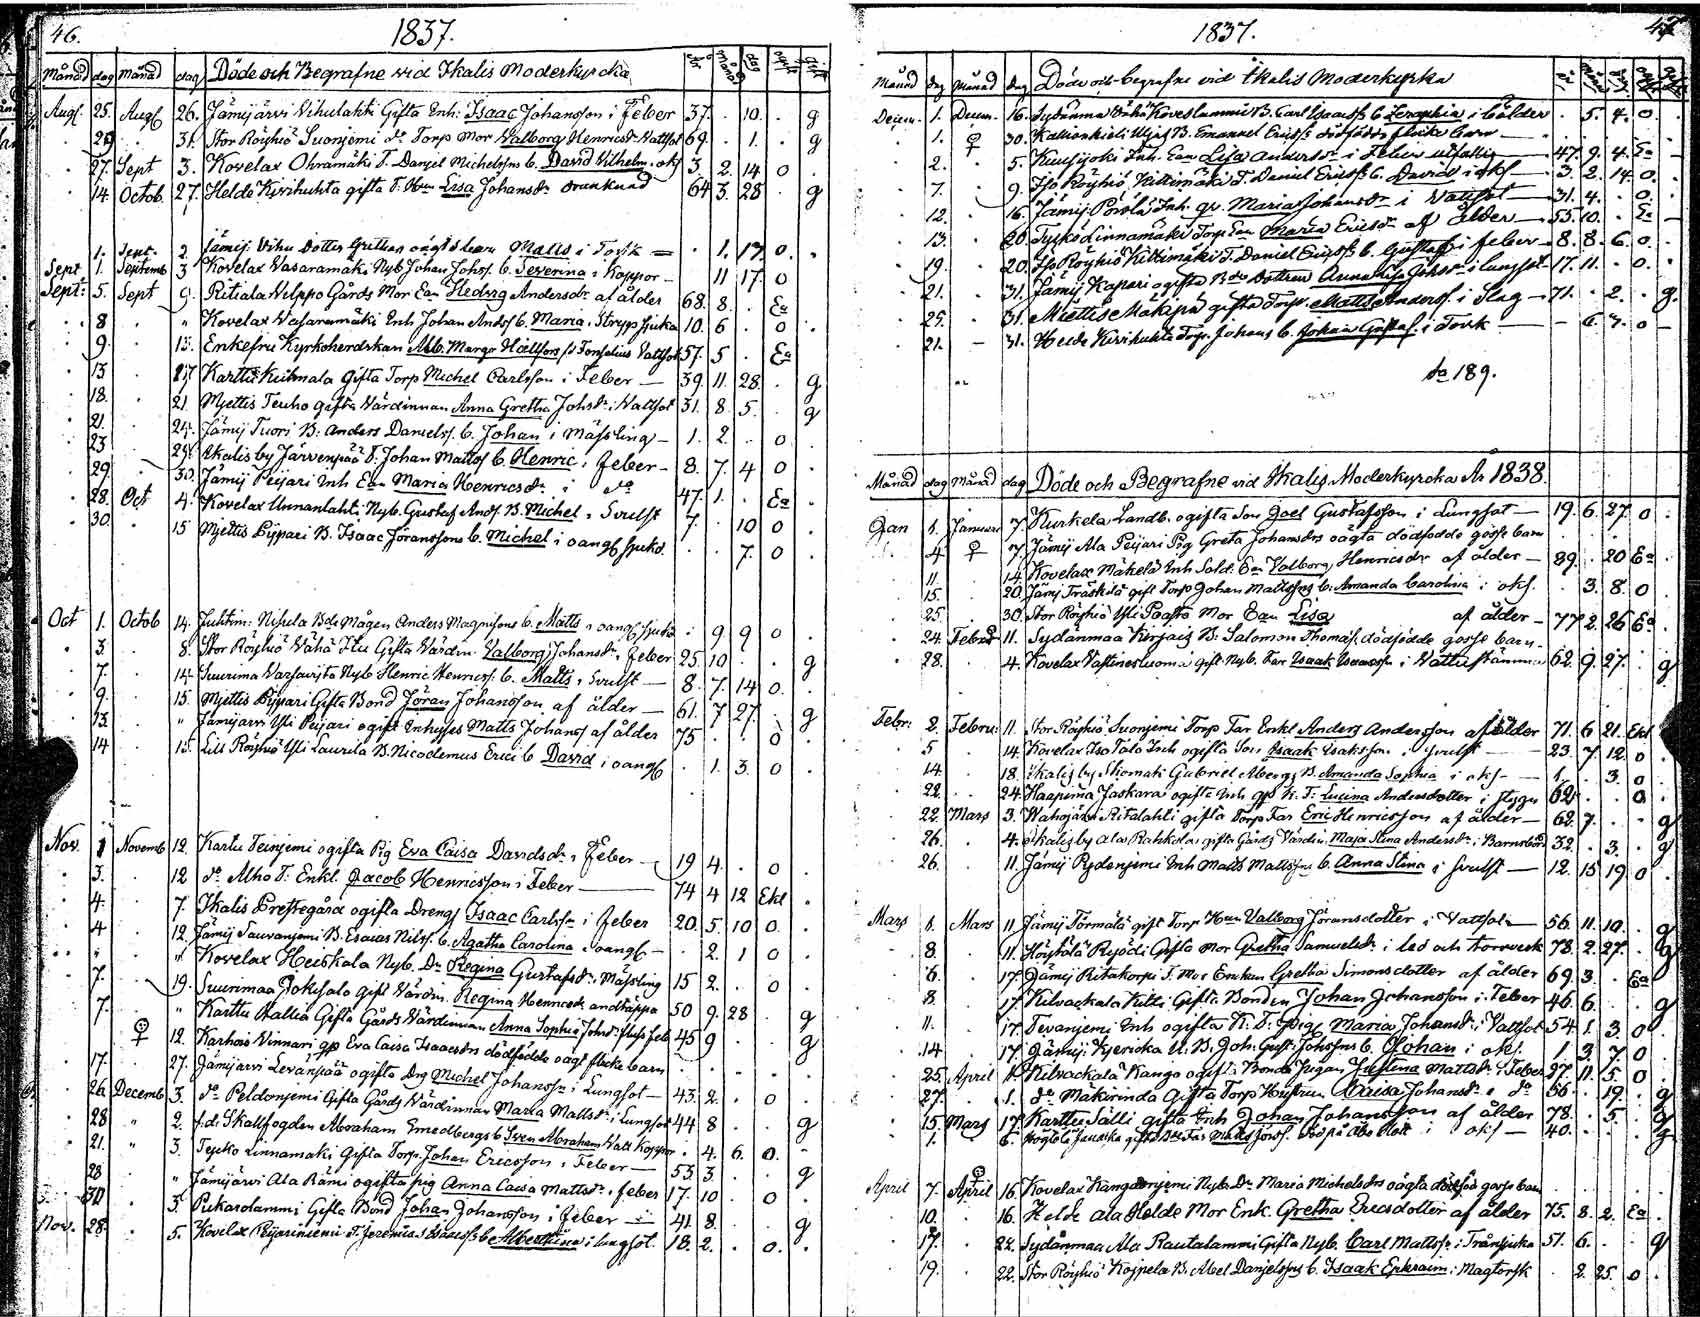 46.
1837.
Månad dag Månad dag Döde och Begrafne vid Ikalis Moderkyrcka år månad dag ogift gift
Aug. 25. Aug. 26. Jämijärvi Vihulahti Gifta Enh: Isaac Johansson i Feber 37. . 10. . g
29. . 31. Stor Röyhiö Suonjemi do Torp Mor Valborg Henricsdr Vattsot 69. . 1. . g
27. Sept 3. Kovelax Ohramäki T. Danjel Michelssons b. David Vilhelm. oks 3. 2. 14 o
14. Octob. 27. Helde Kirihuhta gifta T: Hun Lisa Johansdr drunknad 64 3. 28 . g
1. Sept. 2. Jämij: Vihu Dotter Grethas oägta barn Matts i Torsk = . 1. 17. o.
Sept 1. Septemb 3 Kovelax Vasaramäki Nyb Johan Johss. b. Severina i Koppor - . 11 17. o
Sept: 5. Sept 9. Ritiala Vilppo Gårds Mor Ean Hedvig Andersdr af ålder 68. 8. . Ea
8 . " Kovelax Vasaramäki Inh Johan Ands b. Maria. Strypsjuka 10. 6 . o
9. . 13. Enkefru Kyrkoherdskan Margr Hallfors Vattsot 57. 5 . Ea
13 . 17 Karttu Kuhmala Gifta Torp Michel Carlsson i Feber — 39. 11. 28. . g
18. . 21. Mjettis Teuho gifta Värdinnan Anna Gretha Johsdr i Vattsot 31. 8. 5. . g
21. . 24. Jämij Tuori B. Anders Danielss. b. Johan i Mässling - 1. 2. . o
23 . 24. Ikalis by Järvenpää T. Johan Mattss b. Henric i Feber - 8. 7. 4 o
29. . 30. Jämij Peijari Inh Ean Maria Henricsdr i do 47. 1. . Ea
28. Oct 4. Kovelax Unnanlahti Nyb. Gustaf Ands. B. Michel i Svulst 7. . 10 o
30. . 15 Mjettis Pijpari B. Isaac Jöranssons b. Michel i oangf sjukd. . . 7. o
Oct 1. Octob 14. Juhtim: Nisula Bds Mågen Anders Magnissons b. Matts i oangf sjukd . 9 9 o
3. . 8. Stor Röyhiö Wähä Iku Gifta Värdin. Valborg Johansdr i Feber 25. 10. . . g
7. . 14. Suurima Varsavijta Nyb Henric Henricss. b. Matts i Svulst — 8. 7. 14 o.
9. . 15. Mjettis Pijpari Gifta Bond Jöran Johansson af ålder — 61. 7 27. . g
13. . " Jämijarvi Yli Peijari ogift Inhyses Matts Johanss af ålder 75 . . o
14 . 15. Lill Röyhiö Yli Laurila B. Nicodemus Erici b David i oangf . 1. 3. o
Nov. 1 Novemb 12. Kartu Teinjemi ogifta Pig Eva Caisa Davidsdr i Feber — 19 4. . o
3. . 12 do Alho T. Enkl. Jacob Henricsson i Feber — 74 4 12 Ekl
4. . 7. Ikalis Prestegård ogifta Dreng Isaac Carlssn i feber 20. 5. 10 o.
4 . 12. Jämij Sauvanjemi B. Esaias Nilss. b. Agatha Carolina i oangf - . 2. 1 o
" . " Kovelax Heiskala Nyb. Dr Regina Gustafsdr i Mässling 15 2. . o
7. . 19. Suurimaa Pokisalo gift Värdin. Regina Henricsdr andtäppa 50 9. 28 . g
7. . " Karttu Kallia Gifta Gårds Värdinnan Anna Sophia Johsdr Feb 45 9 . . g
♀ 12. Karhois Vinnari Eva Caisa Isaacsdrs dödfödde oägt flicke barn
17. . 27. Jämijarvi Levänpää ogifta Drg Michel Johanssn i Lungsot - 43. 2. . o
26. Decemb 3. do Peldonjemi Gifta Gårds Värdinnan Maria Mattsdr i Lungsot 44 8 . . g
28 " 2. f.d. Skallfogden Abraham Smedbergs b Sven Abraham Vatt Koppor . 4. 6. o.
21. " 3. Teycko Linnamäki Gifta Torp Johan Ericsson i Feber — 53 3. . . g
28 . " Jämijärvi Ala Rämi ogifta pig Anna Caisa Mattsdr i feber 17. 10 . o
30 . 3. Pukarolammi Gifta Bond Johan Johansson i feber — 41. 8. . . g
Nov. 28. . 5. Kovelax Peijariniemi T. Jeremias Isaacss b Albertina i lungsot. 18. 2. . o.
1837.
47
Månad dag Månad dag Döde och begrafne vid Ikalis Moderkyrka
Decem. 1. Decem. 16. Sydänma Vähä Koveslammi B. Carl Isaacss b Zeraphia i bölder . 5. 4. o.
1. ♀ 30. Kallionkieli B. Emanuel Ericss dödfödde flicke barn —
2. . 5. Kuusijoki Inh. Ean Lisa Andersdr i Feber 47. 9. 4. Ea
7. . 9. Iso Röyhiö Kittimäki T. Daniel Ericss b. David i oks — 3. 2. 14. o.
12. . 16. Jämij Poröla Inh. Maria Johansdr i Vattsot — 31. 4. . o.
13. . 20. Tycko Linnamäki Torp Ean Maria Ericsdr af ålder — 53. 10. . Ea
19. . 20. Iso Röyhiö Kittimäki T. Daniel Ericss b. Gustaf i feber - 8. 8. 6. o.
21. . 31. Jämij Kapari ogifta Bds Dottren Anna Lisa Johsdr i lungsot - 17. 11. . o.
25. . 31. Miettis Mäkipä gifta Torp. Matts Anders. i Slag — 71. . 2. . g.
21. — 31. Heide Kirihuhta Torp. Johans b. Johan Gustaf. i Torsk — . 6. 7. o
Sa 189.
Månad dag Månad dag Döde och Begrafne vid Ikalis Moderkyrcka År 1838.
Jan 1. Januari 7. Kurkela Landb. ogifta Son Joel Gustafsson i Lungsot — 19. 6. 27. o
4 ♀ 7. Jämij Ala Peijari Pig Greta Johansdrs oägta dödfödde gosse barn
11. . 14. Kovelax Mäkelä Inh Sold. Ean Valborg Henricsdr af ålder — 89. . 20 Ea
15. . 20. Jämij Träskilä gift Torp Johan Mattssons b. Amanda Carolina i oks. . 3. 8 o
25. . 30. Stor Röyhiö Yli Poasto Mor Ean Lisa af ålder — 77 2. 26 Ea
24. Februa 11. Sydänmaa Kirjais B: Salomon Thomass dödfödde gosse barn —
28. . 4. Kovelax Vastinesluoma gift Nyb. Far Isaak Isaacssn i Vattustämma 62. 9. 27. . g
Febr: 2. Febru: 11. Stor Röyhiö Suonjemi Torp Far Enkl Anders Andersson af ålder 71. 6 21. Ekl
5 . 14. Kovelax Iso Talo Inh ogifta Son Isaak Isaksson i svulst — 23. 7 12. o
14 . 18. Ikalis by Skomak Gabriel Abergs B. Amanda Sophia i oks — 1. . 3. o
22. . 24. Haapima Jaskara ogifta Inh K. T: Lucina Andersdotter i flygn 62. . . o
22. Mars 3. Wahojärvi Ritalahti gifta Torp Far Eric Henricsson af ålder — 62. 7. . . g
26. . 4. Ikalis by Ala Rahkola gifta Gårds Värdin Maja Stina Andersdr i Barnsbörd 32. . 3. . g
26. . 11. Jämij Pydenjemi Inh Matts Mattssons b. Anna Stina i Svulst — 12. 15 19 o
Mars 1. Mars 11. Jämij Törmälä gift Torp Hun Valborg Jöransdotter i Vattsot — 56. 11. 10. . g
8. . 11. Höytölä Rysödi Gifta Mor Gretha Samuelsdr i led och torrverk 78. 2. 27. . g
6. . 17. Jämij Ritakorpi T. Mor Enkan Gretha Simonsdotter af ålder 69. 3. . Ea
8. . 17. Kilvackala Kitti Gifta Bonden Johan Johansson i Feber 46. 6 . . g
11. . 17. Tevanjemi Inh ogifta K: T: Pig Maria Johansdr i Vattsot 54. 1. 3. o
14. . 17. Jämij: Kjericka U: B: Joh: Gust: Johssons b. Johan i oks. 1. 3. 7. o
25. April 1. Kilvackala Kango ogift: Bonde Pigan Justina Mattsdr i Feber 27. 11. 5 o
27. . 1. do Mäkirinda Gifta Torp Hustrun Caisa Johansdr i do 56. . 19. . g
15. Mars 17. Karttu Sälli gifta Inh Johan Johansson af ålder 78. . 5. . g
1. . 6. Matts död på Abo Slott i oks — 40. . . . g
April 7. April 16. Kovelax Kangasnjemi Nyb. Dr Maria Michelsdrs oägta dödföd gosse barn
10. . 16. Helde Ala Helde Mor Enk. Gretha Ericsdotter af ålder 75. 8. 2. Ea
17. . 22. Sydänmaa Ala Rautalammi Gifta Nyb. Carl Mattssn i Trånsjuka 51. 6. . . g
19. . 22. Stor Röyhiö Kojpela B. Abel Danjelssons b. Isaak Ephraim i Magtorsk . 2. 25. o